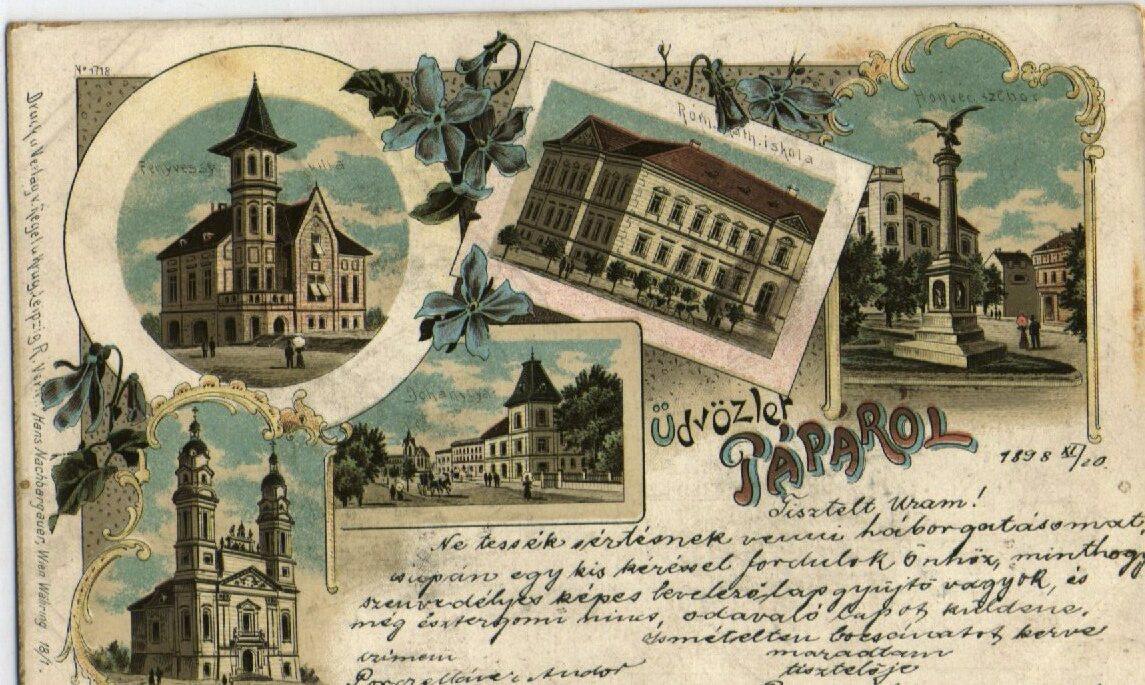 No 1718
Fenyvessy villa
Róm. kath. iskola
Honvéd szobor
Üdvözlet
PÁPÁROL
1898 XI/20.
Tisztelt Uram!
Ne tessék sértésnek venni háborgatásomat
csupán egy kis kéréssel fordulok Önhöz, minthogy
szenvedélyes képes levelező lap gyüjtő vagyok, és
még esztergomi nincs, odavaló lapot küldene.
Ismételten bocsánatot kérve
maradtam
czimem
tisztelője
Andor
Druck u Verlag v. Hans Nachbargauer, Wien Währing 18/1.